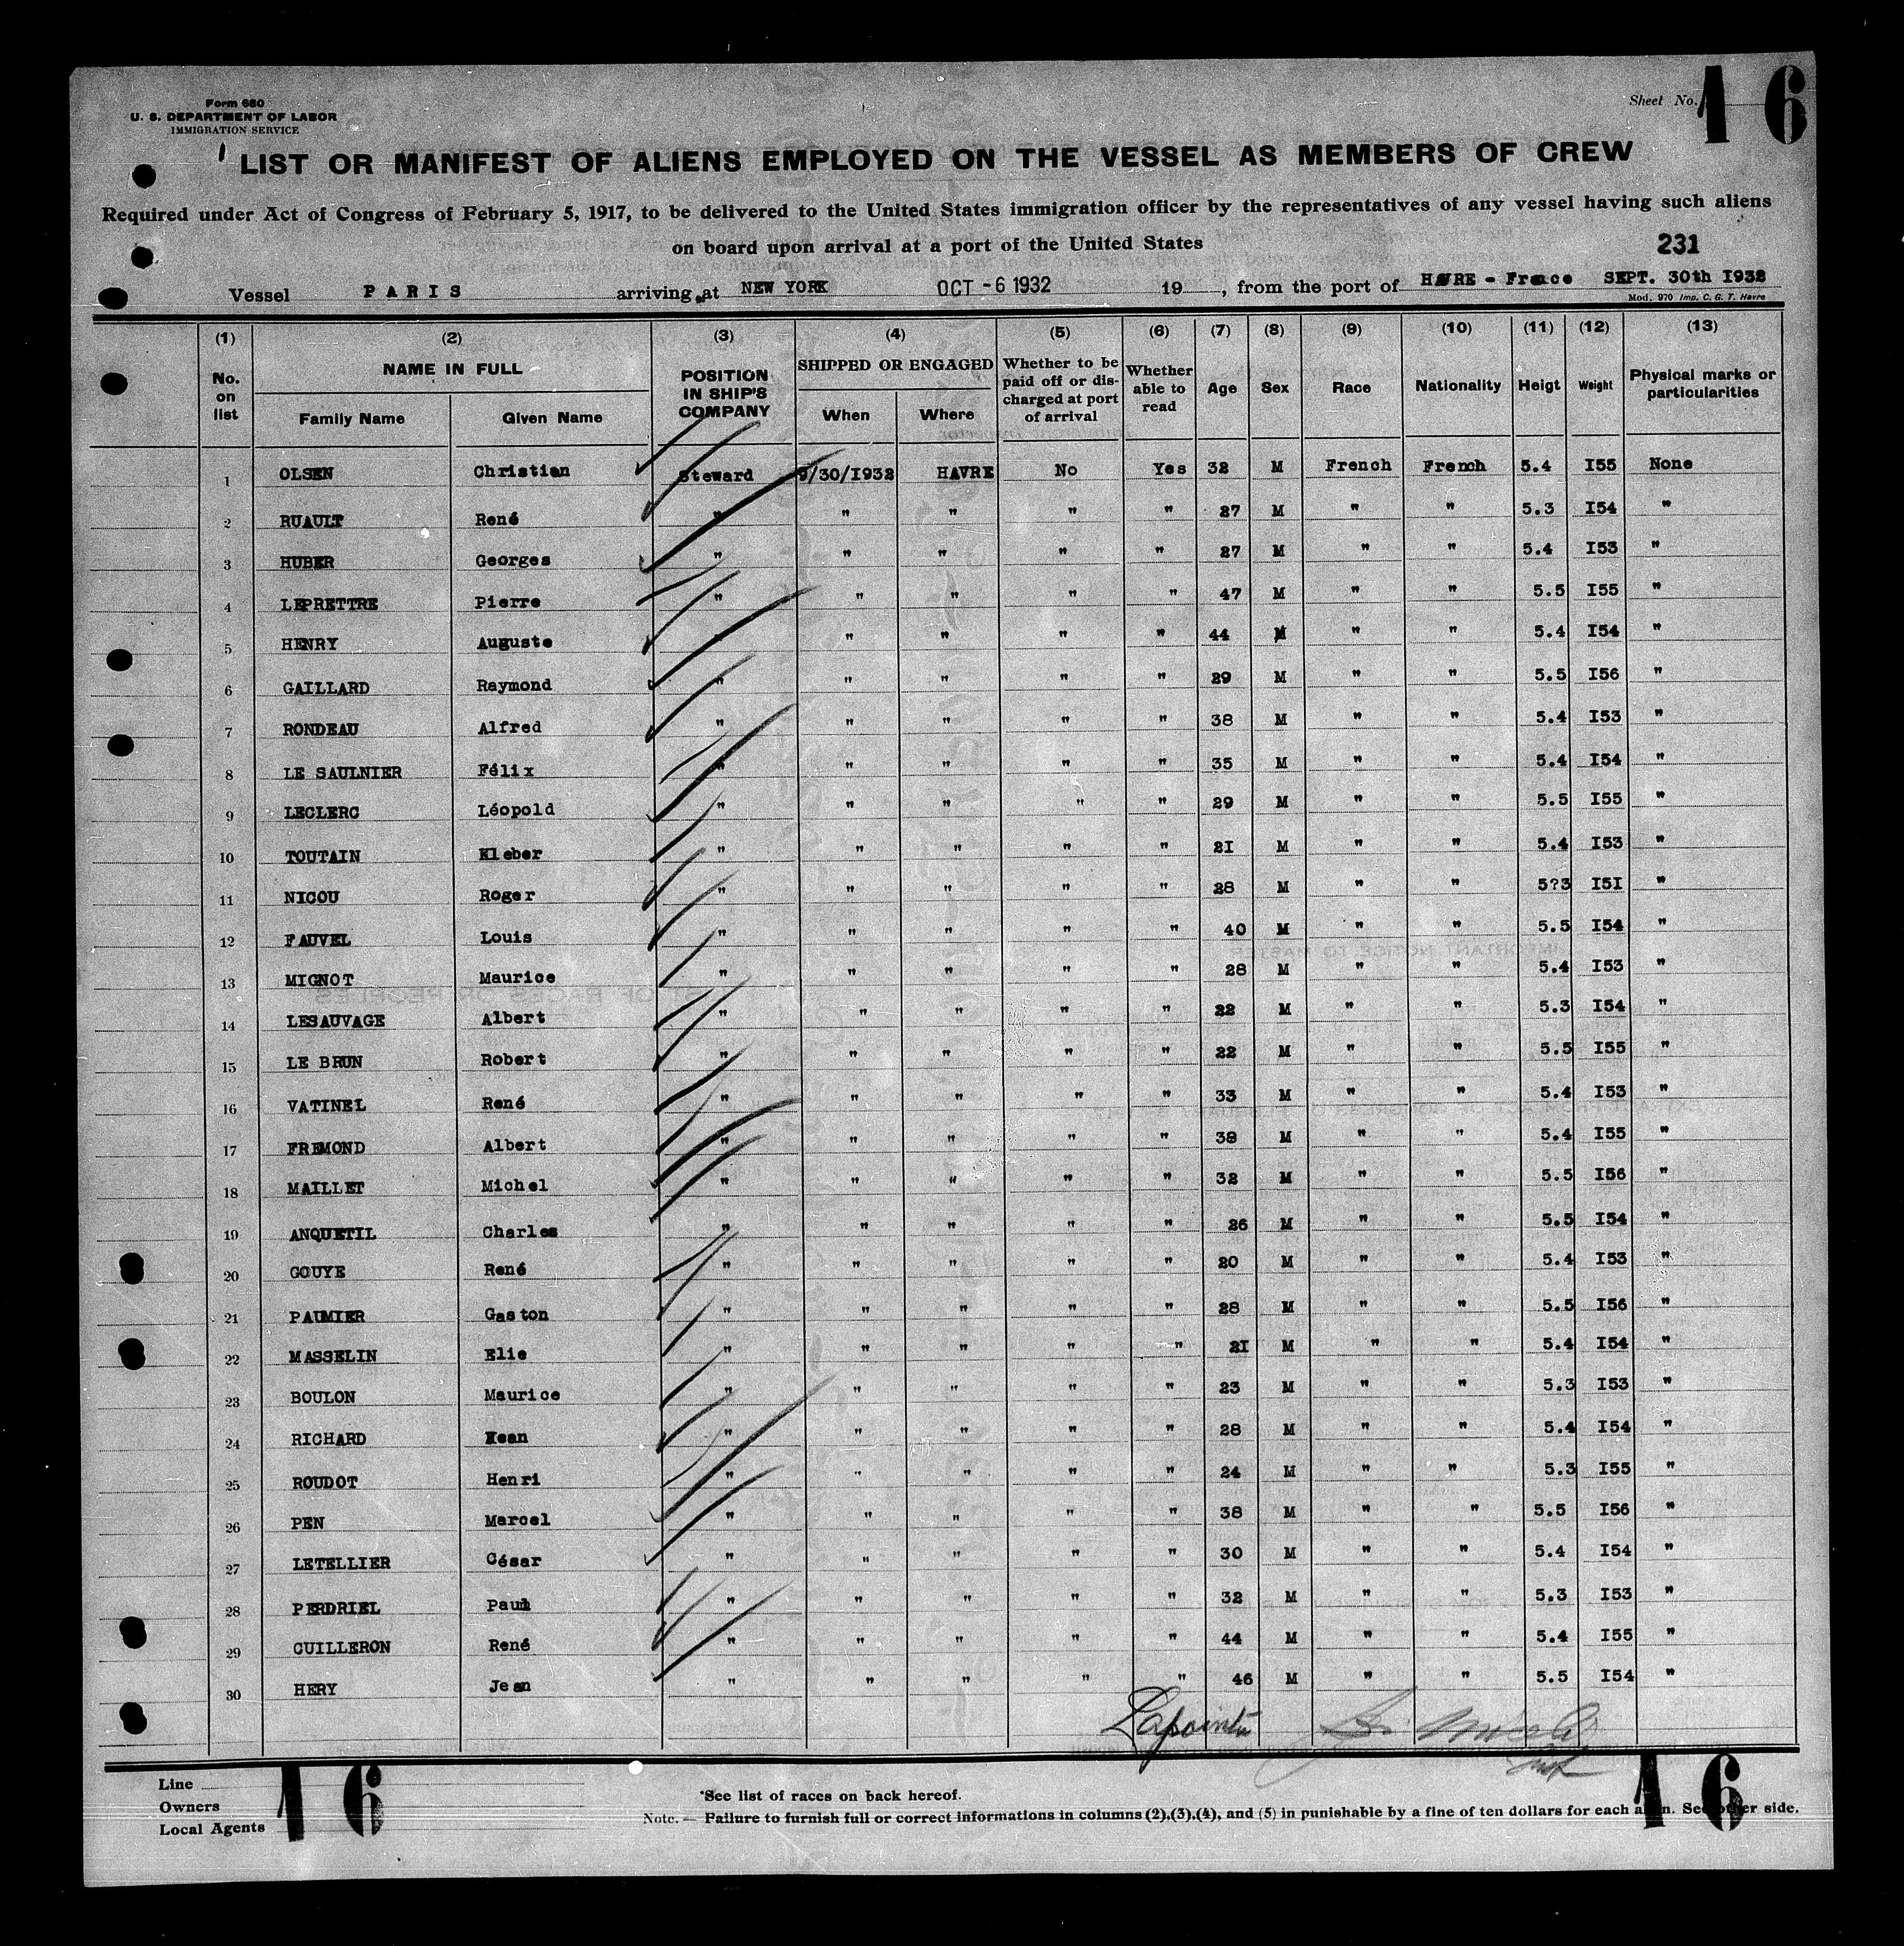 Form 680
U. S. DEPARTMENT OF LABOR
IMMIGRATION SERVICE
Sheet No. 16
LIST OR MANIFEST OF ALIENS EMPLOYED ON THE VESSEL AS MEMBERS OF CREW
Required under Act of Congress of February 5, 1917, to be delivered to the United States immigration officer by the representatives of any vessel having such aliens
on board upon arrival at a port of the United States
231
Vessel PARIS arriving at NEW YORK OCT -6 1932 19 , from the port of HAVRE - France SEPT. 30th I932
Mod. 970 Imp. C. G. T. Havre
(1) (2) (3) (4) (5) (6) (7) (8) (9) (10) (11) (12) (13)
No. on list NAME IN FULL Family Name Given Name POSITION IN SHIP'S COMPANY SHIPPED OR ENGAGED When Where Whether to be paid off or discharged at port of arrival Whether able to read Age Sex Race Nationality Heigt Weight Physical marks or particularities
1 OLSEN Christian Steward 9/30/I932 HAVRE No Yes 32 M French French 5.4 I55 None
2 RUAULT René " " " " " 27 M " " 5.3 I54 "
3 HUBER Georges " " " " " 27 M " " 5.4 I53 "
4 LEPRETTRE Pierre " " " " " 47 M " " 5.5 I55 "
5 HENRY Auguste " " " " " 44 M " " 5.4 I54 "
6 GAILLARD Raymond " " " " " 29 M " " 5.5 I56 "
7 RONDEAU Alfred " " " " " 38 M " " 5.4 I53 "
8 LE SAULNIER Félix " " " " " 35 M " " 5.4 I54 "
9 LECLERC Léopold " " " " " 29 M " " 5.5 I55 "
10 TOUTAIN Kleber " " " " " 2I M " " 5.4 I53 "
11 NICOU Roger " " " " " 28 M " " 5?3 I5I "
12 FAUVEL Louis " " " " " 40 M " " 5.5 I54 "
13 MIGNOT Maurice " " " " " 28 M " " 5.4 I53 "
14 LESAUVAGE Albert " " " " " 22 M " " 5.3 I54 "
15 LE BRUN Robert " " " " " 22 M " " 5.5 I55 "
16 VATINEL René " " " " " 33 M " " 5.4 I53 "
17 FREMOND Albert " " " " " M " " 5.4 I55 "
18 MAILLET Michel " " " " " 32 M " " 5.5 I56 "
19 ANQUETIL Charles " " " " " 26 M " " 5.5 I54 "
20 GOUYE René " " " " " 20 M " " 5.4 I53 "
21 PAUMIER Gaston " " " " " 28 M " " 5.5 I56 "
22 MASSELIN Elie " " " " " 2I M " " 5.4 I54 "
23 BOULON Maurice " " " " " 23 M " " 5.3 I53 "
24 RICHARD " " " " " 28 M " " 5.4 I54 "
25 ROUDOT Henri " " " " " 24 M " " 5.3 I55 "
26 PEN Marcel " " " " " 38 M " " 5.5 I56 "
27 LETELLIER César " " " " " 30 M " " 5.4 I54 "
28 PERDRIEL Paul " " " " " 32 M " " 5.3 I53 "
29 GUILLERON René " " " " " 44 M " " 5.4 I55 "
30 HERY Jean " " " " " 46 M " " 5.5 I54 "
Lapointe
Line
Owners
Local Agents
16
*See list of races on back hereof.
Note. — Failure to furnish full or correct informations in columns (2),(3),(4), and (5) in punishable by a fine of ten dollars for each alien. See other side.
16